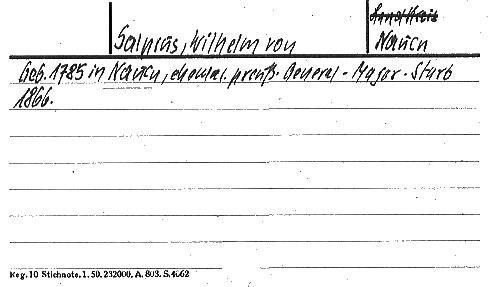 Salpius, Wilhelm von
Nauen
Geb. 1785 in Nauen, ehemal. preuß. General-Major. Starb
1866.
Reg. 10 Stichnote. 1. 50. 232000. A. 803. S. 4662